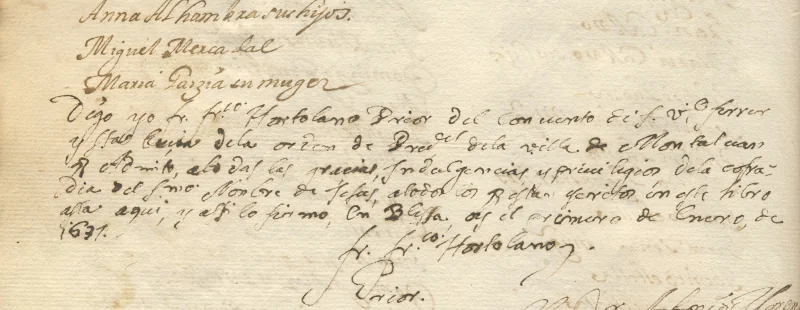 Anna Alhambra sus hijos.
Miguel Mercadal
Maria Garzia su muger
Digo yo fr. fr.co Hortolano Prior del Convento de S. Vi.e ferrer
y sta Lucia dela orden de Pred.es dela villa de Montalvan
q admito, a todas las gracias, Indulgencias y privilegios dela cofra-
dia del S.mo Nombre de Jesus, a todos los q estan escritos en este libro
asta aqui, y assi lo firmo, en Blessa, a el primero de Enero, de
1631.
fr. fr.co Hortolano.
Prior.